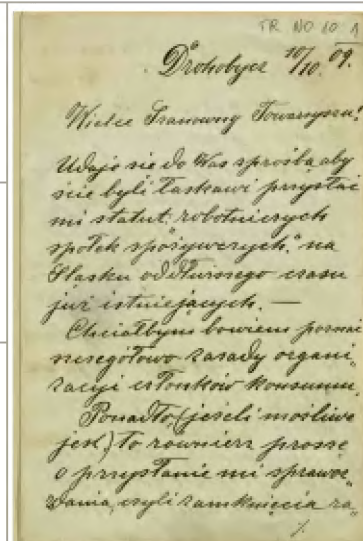 TR NO 10 1
Drohobycz 10/10. 09.
Wielce Szanowny Towarzyszu!
Udaję się do Was z prośbą, aby
ście byli łaskawi przysłać
mi statut „robotniczych
spółek spożywczych” na
Śląsku od dłuższego czasu
już istniejących. —
Chciałbym bowiem poznać
szczegółowo zasady organi„
zacyji członków konsumu.
Ponadto (jeżeli możliwe
jest) to również proszę
o przysłanie mi sprawoz„
dania, czyli zamknięcia ra„
/.